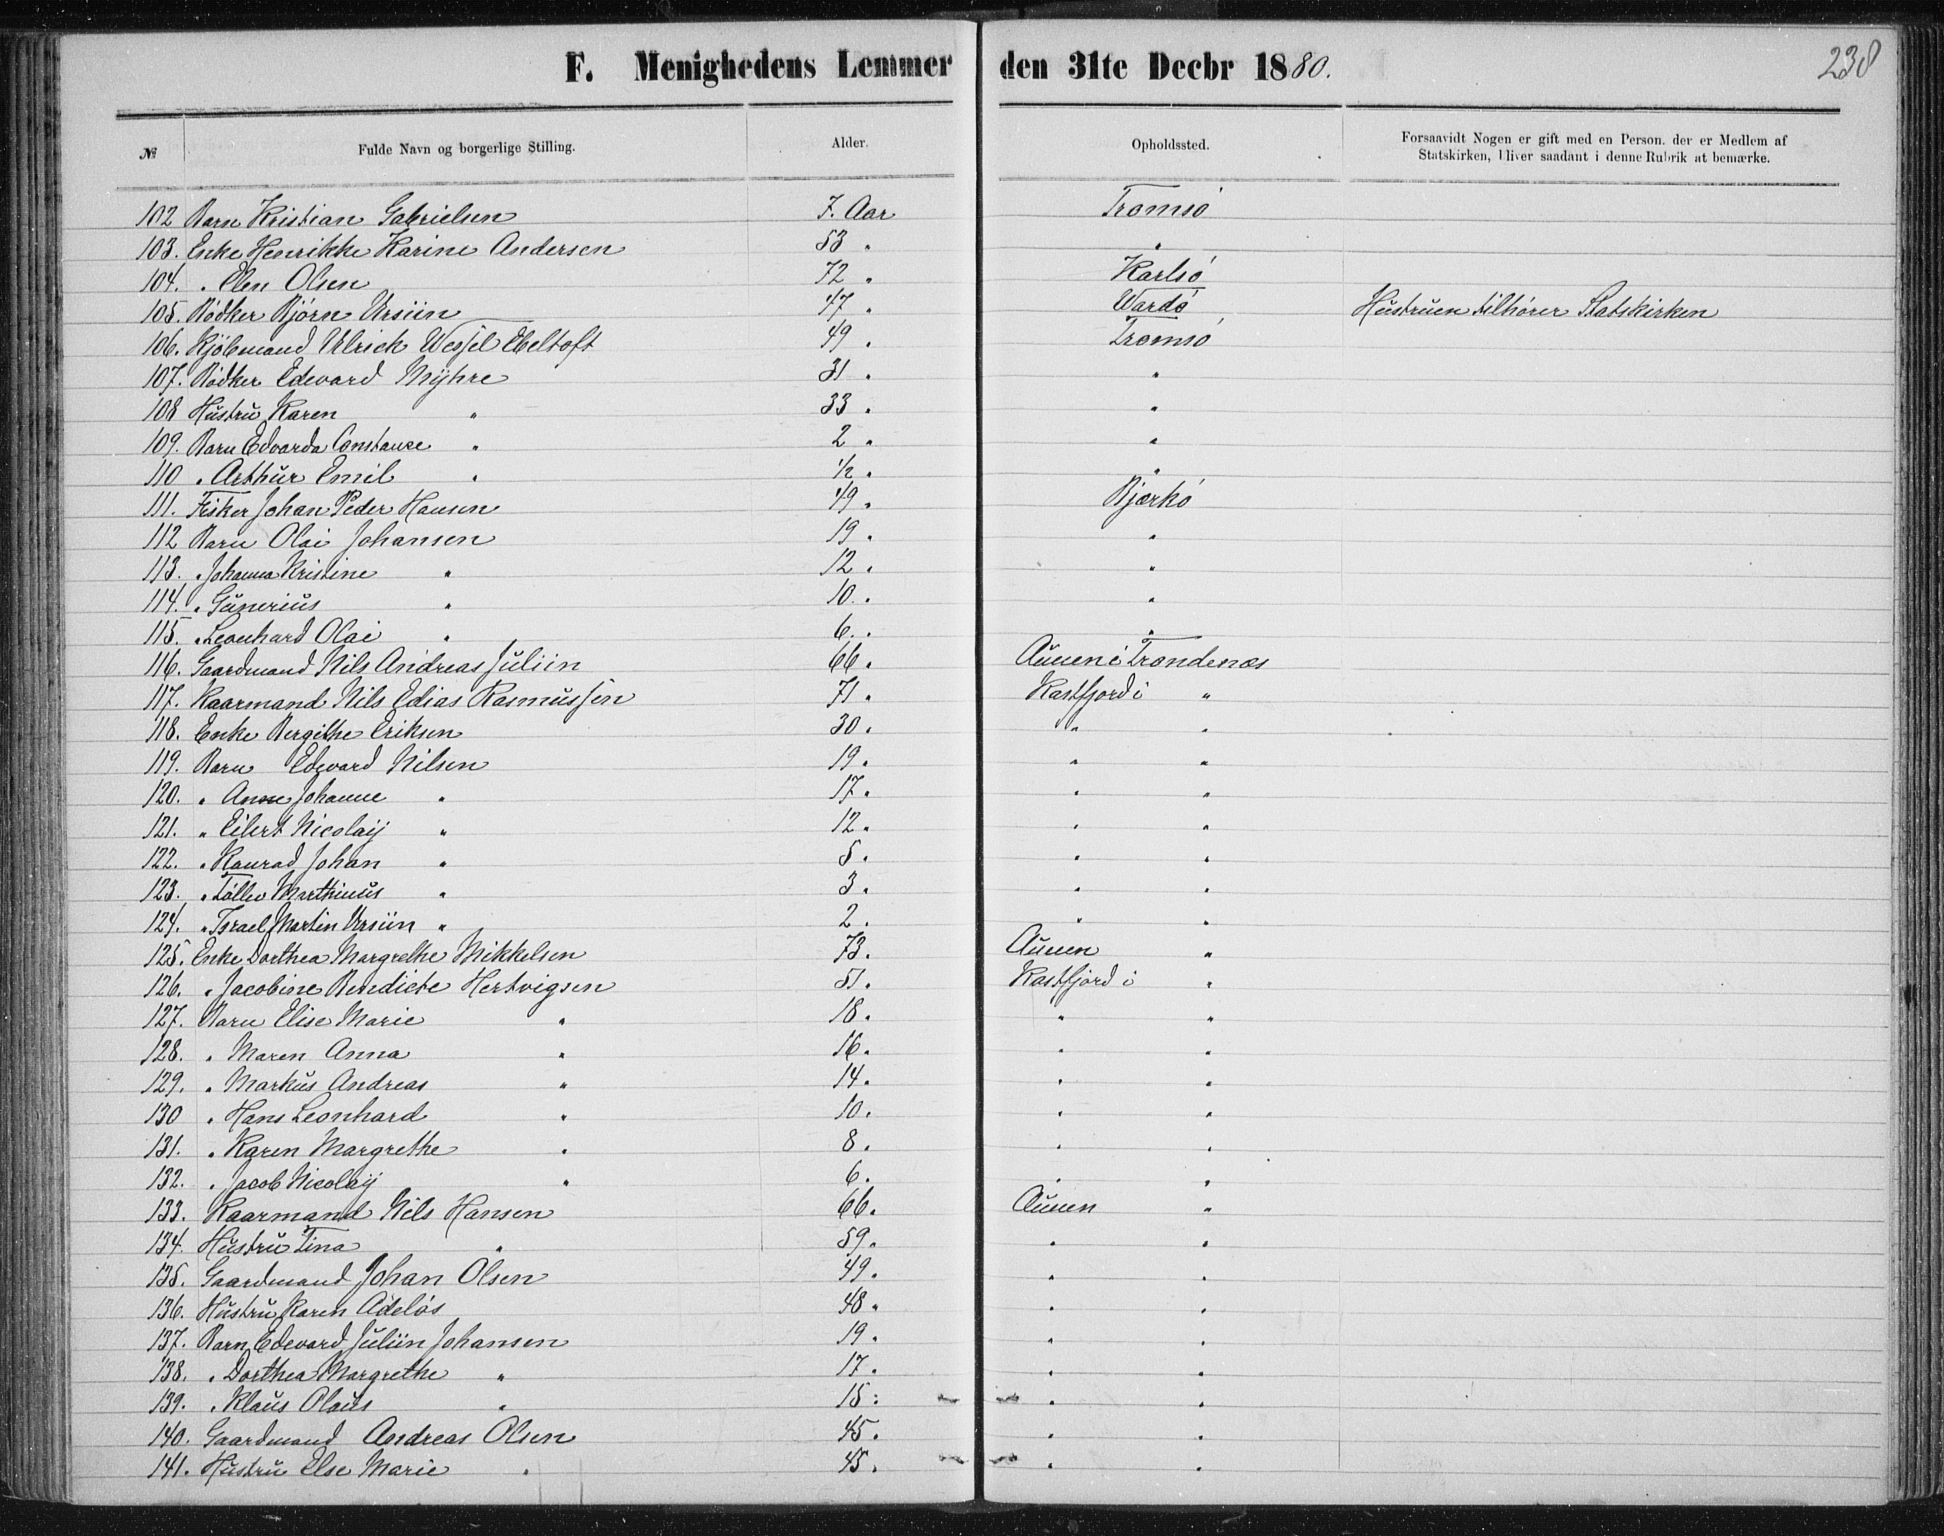 F. Menighedens Lemmer den 31te Decbr 1880. 238
№ Fulde Navn og borgerlige Stilling. Alder. Opholdssted. Forsaavidt Nogen er gift med en Person, der er Medlem af
Statskirken, bliver saadant i denne Rubrik at bemærke.
102 Barn Kristian Gabrielsen 7. Aar Tromsö
103. Enke Henrikke Karine Andersen 53 " "
104. " Elen Olsen 72 " Karlsö
105. Bödker Björn Ursiin 47 " Wardö Hustruen tilhører Statskirken
106. Kjöbmand Ulrick Wessel Ebeltoft 49 " Tromsö
107. Bödker Edevard Myhre 31 " "
108 Hustru Karen " 33 " "
109. Barn Edvarda Constanse " 2 " "
110 " Arthur Emil " 1/2 " "
111. Fisker Johan Peder Hansen 49 " Bjarkö
112 Barn Olai Johansen 19 " "
113. " Johanna Kristine " 12 " "
114. " Gunerius " 10. " "
115. " Leonhard Olai " 6. " "
116. Gaardmand Nils Andreas Juliin 66 " Aunen i Trondenæs
117. Kaarmand Nils Edias Rasmussen 71 " Kastfjord i "
118. Enke Bergithe Eriksen 30 " " "
119. Barn Edevard Nilsen 19 " " "
120. " Anne Johanne " 17 " " "
121. " Eilert Nicolaij " 12 " " "
122. " Konrad Johan " 5 " " "
123. " Tollev Marthinus " 3 " " "
124. " Israel Martin Ursiin " 2 " " "
125. Enke Dorthea Margrethe Mikkelsen 73 " Aunen "
126. " Jacobine Bendicte Hertvigsen 51 " Kastfjord i "
127. Barn Elise Marie " 18 " " "
128. " Maren Anna " 16 " " "
129. " Markus Andreas " 14 " " "
130 " Hans Leonhard " 10 " " "
131. " Karen Margrethe " 8 " " "
132. " Jacob Nicolaij " 6 " " "
133. Kaarmand Nils Hansen 66 " Aunen "
134. Hustru Tina " 59 " " "
135. Gaardmand Johan Olsen 49 " " "
136. Hustru Karen Adelös 48 " " "
137. Barn Edevard Juliin Johansen 19 " " "
138. " Dorthea Margrethe " 17 " " "
139. " Klaus Olaus " 15 " " "
140. Gaardmand Andreas Olsen 45 " " "
141. Hustru Else Marie " 45 " " "